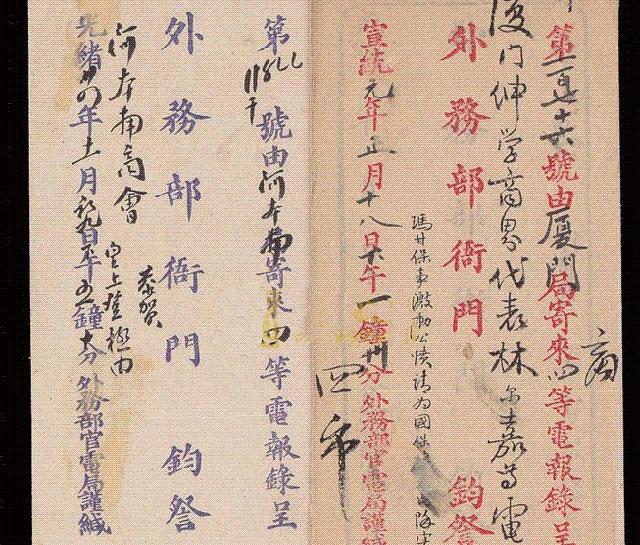 商
第一百七十六號由廈門局寄來四等電報錄呈
廈門紳学商界代表林尔嘉等電
外務部衙門 鈞詧
瑪甘保事激動公憤請為國保
宣統元年正月十八日下午一鐘卅分外務部官電局謹緘
四
第 號由河本𢷬寄來四等電報錄呈
外務部衙門 鈞詧
商會
恭賀
皇上登極由
光緒卅四年十一月初九日下午 鐘 分外務部官電局謹緘